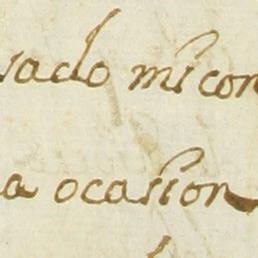 vado mi con
a ocasion